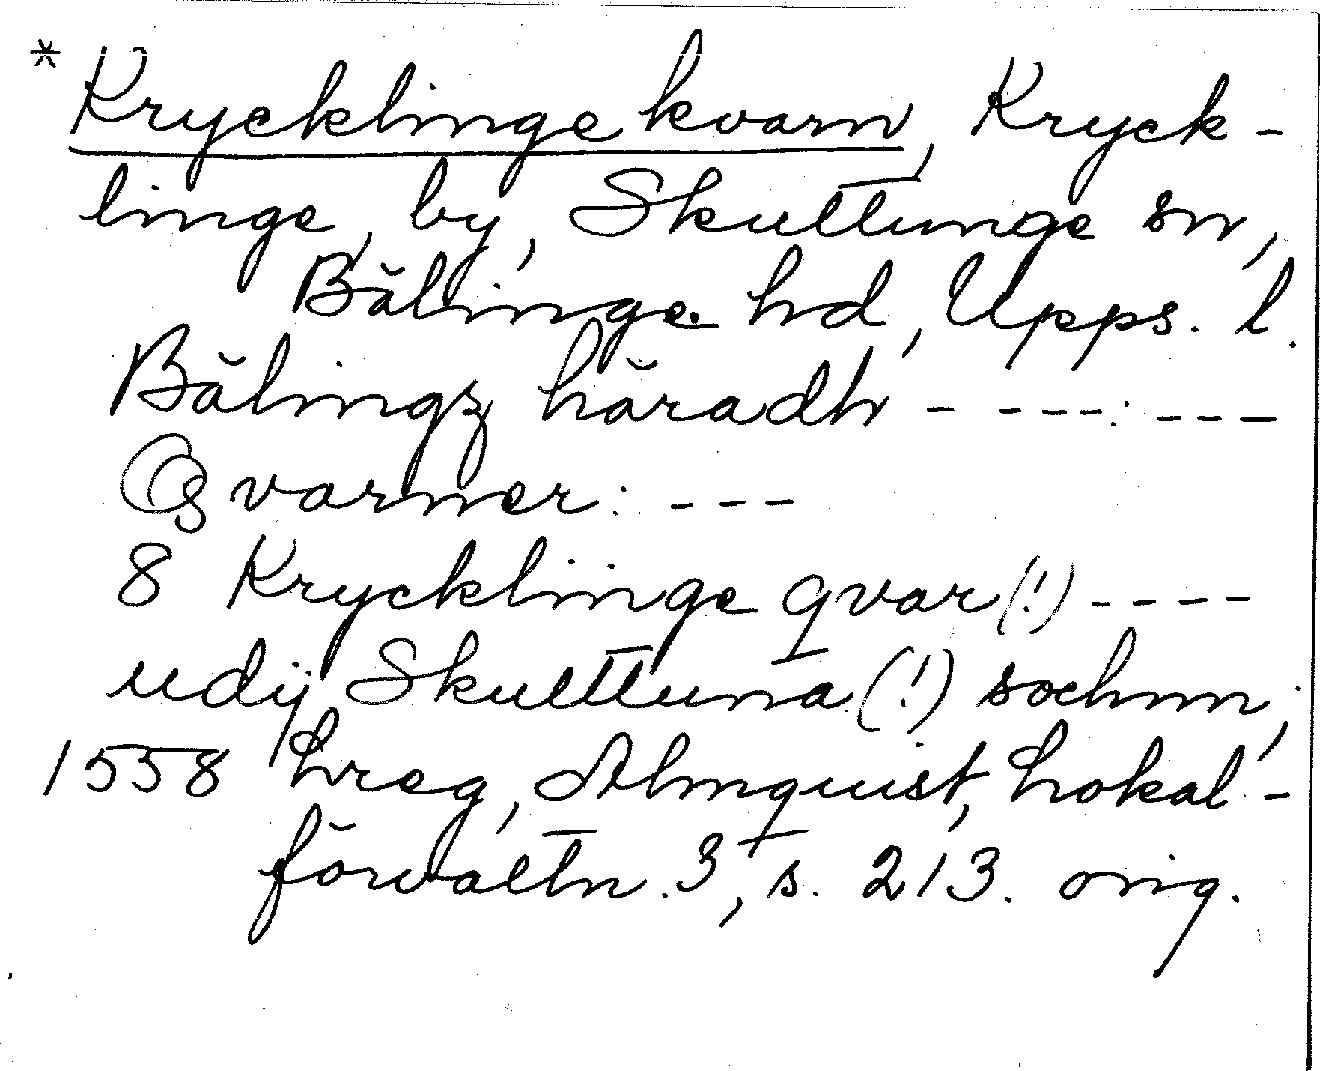 * Krycklinge kvarn, Kryck-
linge, by, Skuttunge sn,
Bälinge hd, Upps. l.
Bälingz häradh - - - - : - - -
Qvarner: - - -
8 Krycklinge qvar (!) - - - -
udij Skulttuna (!) sochnn,
1558 hreg, Almquist, Lokal-
förvaltn. 3, s. 213. orig.